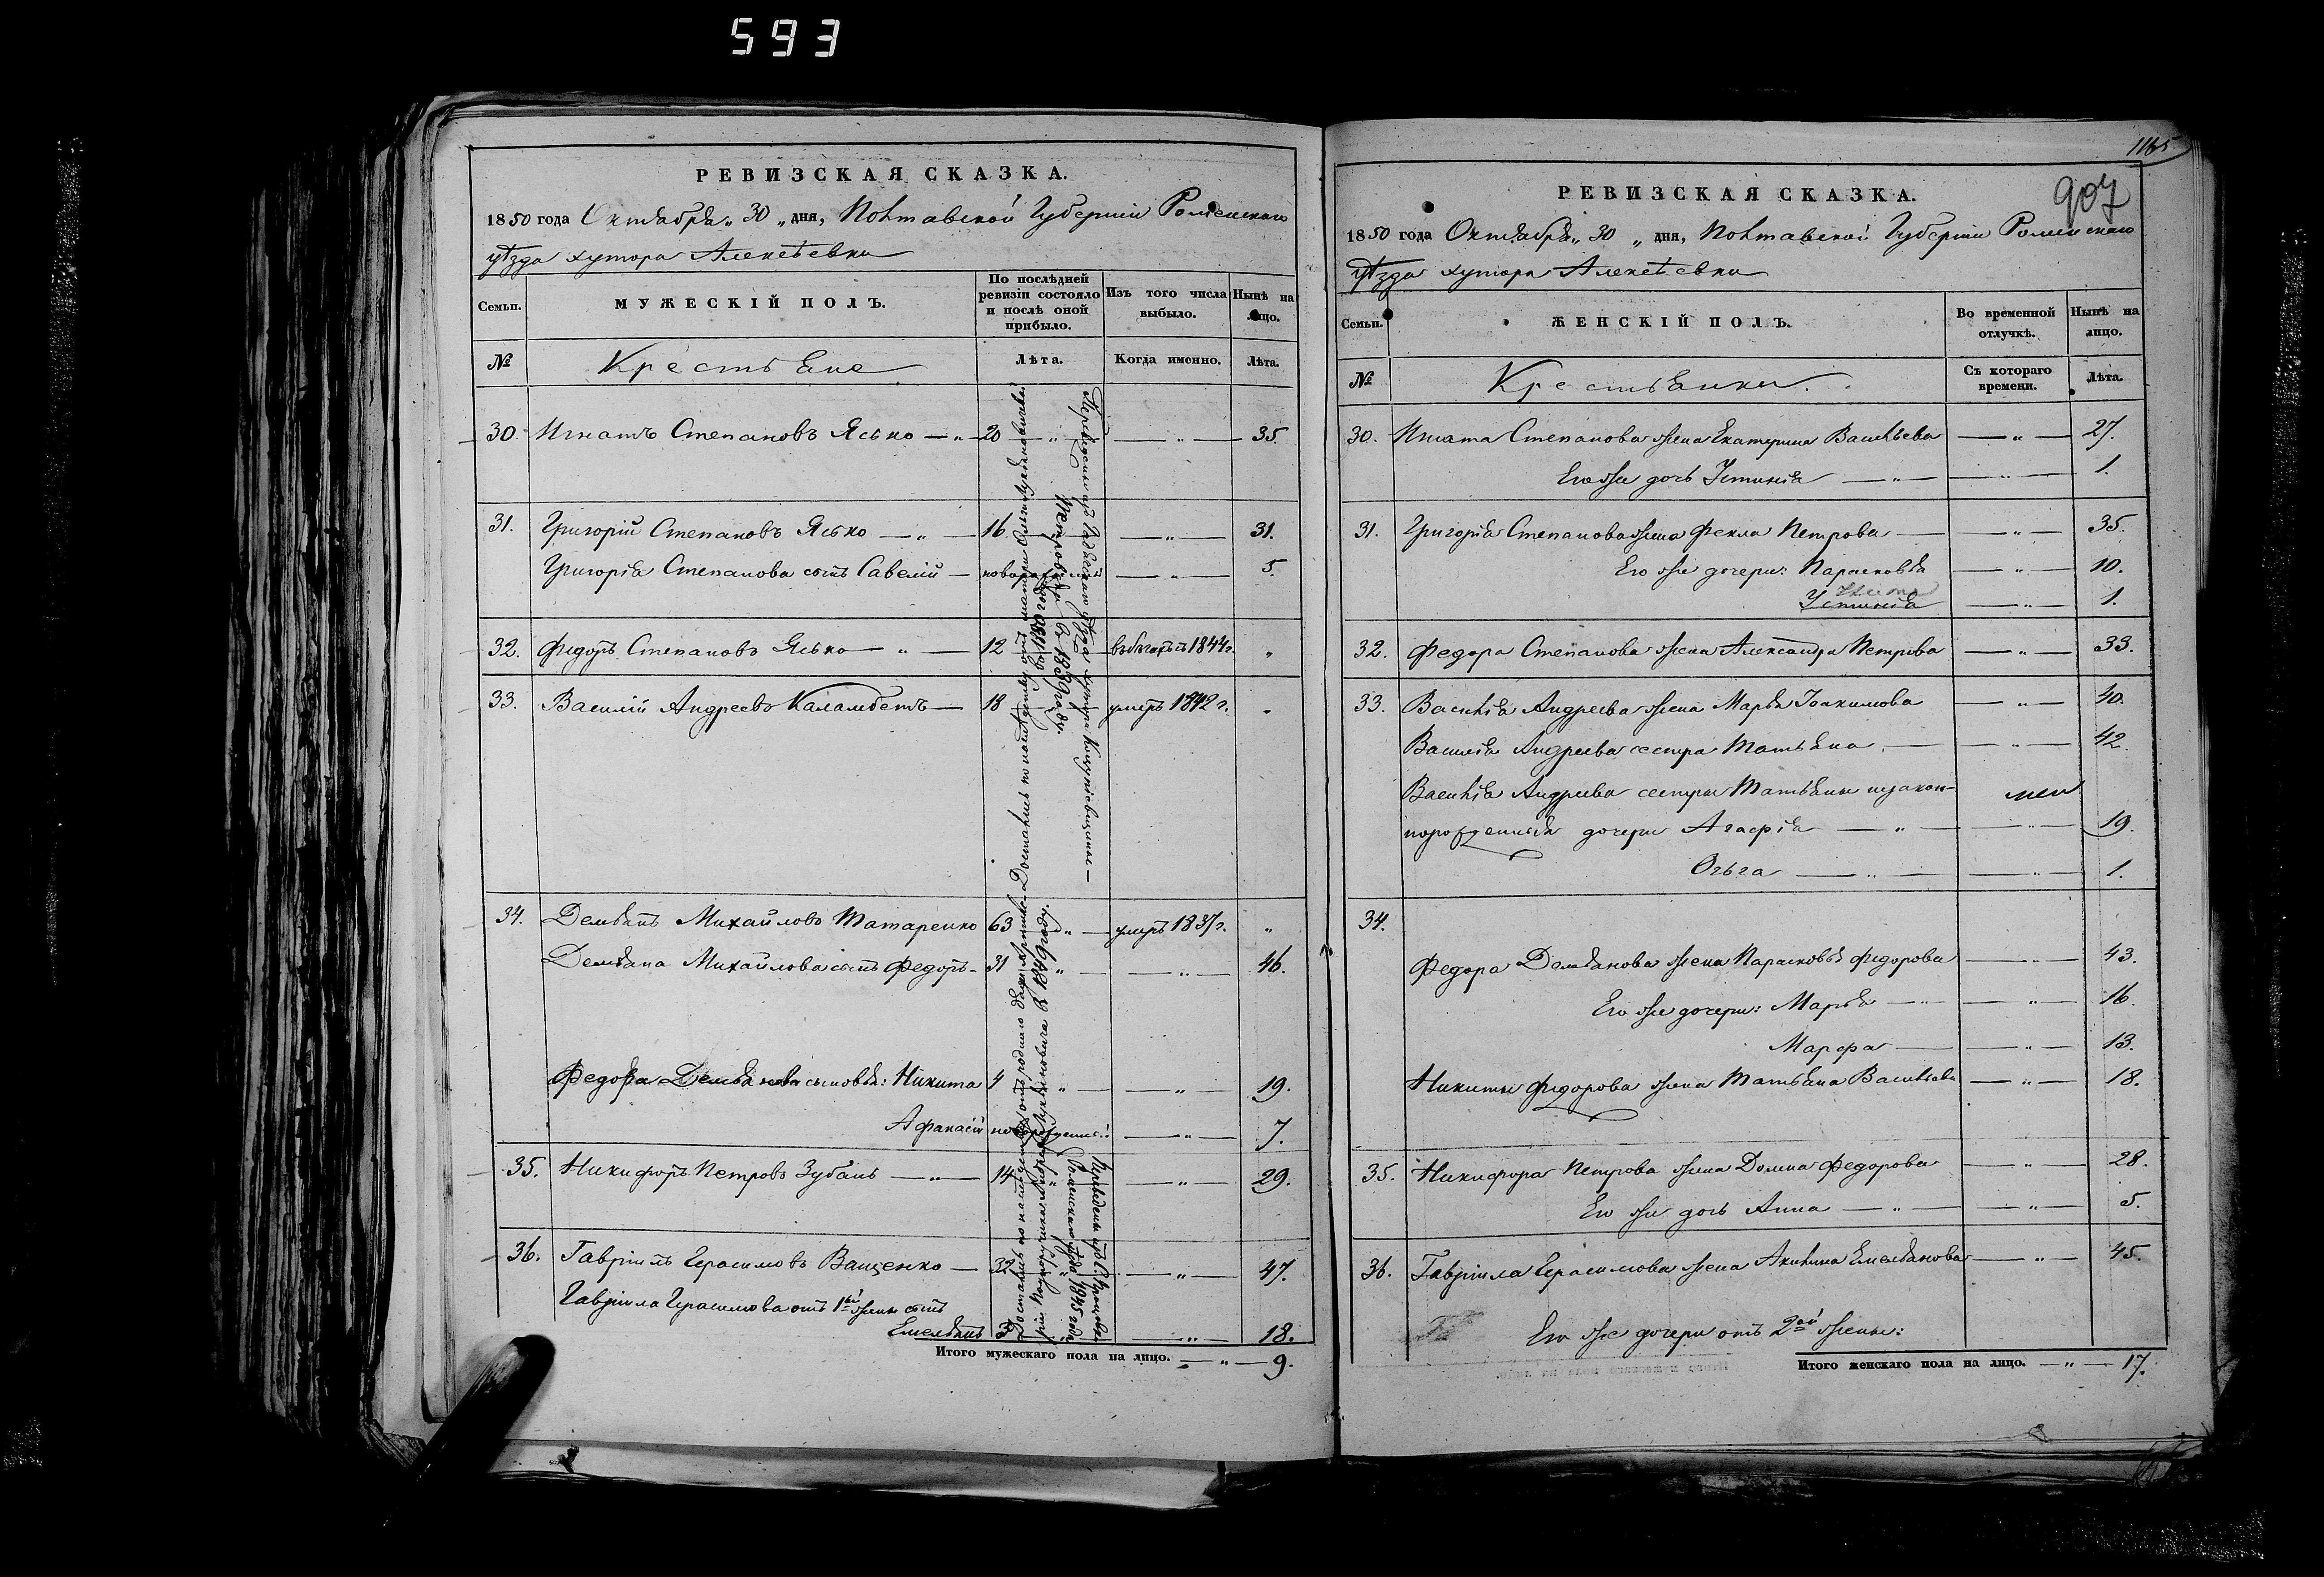 593
РЕВИЗСКАЯ СКАЗКА.
1850 года Октября „ 30 „ дня, Полтавской Губерніи Роменскаго
уѣзда хутора Алексѣевки
Семьи.
МУЖЕСКІЙ ПОЛЪ.
По послѣдней ревизіи состояло и послѣ оной прибыло.
Изъ того числа выбыло.
Нынѣ на лицо.
№
Крестьяне
Лѣта.
Когда именно.
Лѣта.
30. Игнатъ Степановъ Ясько — „ — 20 — „ — — „ — 35.
31. Григорій Степановъ Ясько — „ — 16 — „ — 31.
Григорія Степанова сынъ Савелій — новорожденный — „ — 5.
32. Федоръ Степановъ Ясько — „ — 12 въ бѣгахъ съ 1844 г. „
33. Василій Андреевъ Каламбетъ — 18 умеръ 1842 г. „
34. Демьянъ Михайловъ Татаренко 63 „ — умеръ 1837 г. „
Демьяна Михайлова сынъ Федоръ - 31 „ — — „ — 46.
Федора Демьянова сыновья: Никита 4 „ — — „ — 19.
Афанасій новорожденный — „ — 7.
35. Никифоръ Петровъ Зубань — „ — 14 „ — „ — 29.
36. Гавріилъ Герасимовъ Ващенко — 32 „ — „ — 47.
Гавріила Герасимова отъ 1ой жены сынъ
Емельянъ 3 „ — „ — 18.
Итого мужескаго пола на лицо. — „ — 9.
въ 1850 году
Петровны въ 1839 году.
въ 1849 году.
Роменскаго уѣзда 1845 года
1165
907
РЕВИЗСКАЯ СКАЗКА.
1850 года Октября „ 30 „ дня, Полтавской Губерніи Роменскаго
уѣзда хутора Алексѣевки
Семьи.
ЖЕНСКІЙ ПОЛЪ.
Во временной отлучкѣ.
Нынѣ на лицо.
№
Крестьянки.
Съ котораго времени.
Лѣта.
30. Игната Степанова жена Екатерина Васильева — „ — 27.
Его же дочь Устинія — „ — — „ — 1.
31. Григорія Степанова жена Фекла Петрова — — „ — 35.
Его же дочери: Парасковья — „ — 10.
Устинія — „ — 1.
32. Федора Степанова жена Александра Петрова — „ — 33.
33. Василія Андреева жена Марья Іоакимова — „ — 40.
Василія Андреева сестра Татьяна — — „ — 42.
Василія Андреева сестры Татьяны незакон-
норожденныя дочери Агафія — „ — — „ — 19.
Ольга — „ — — „ — 1.
34.
Федора Демьянова жена Парасковья Федорова — „ — 43.
Его же дочери: Марья — „ — — „ — 16.
Марфа — — „ — 13.
Никиты Федорова жена Татьяна Васильева — „ — 18.
35. Никифора Петрова жена Домна Федорова — „ — 28.
Его же дочь Анна — „ — — „ — 5.
36. Гавріила Герасимова жена Акилина Емельянова — „ — 45.
Его же дочери отъ 2ой жены:
Итого женскаго пола на лицо. — „ — 17.